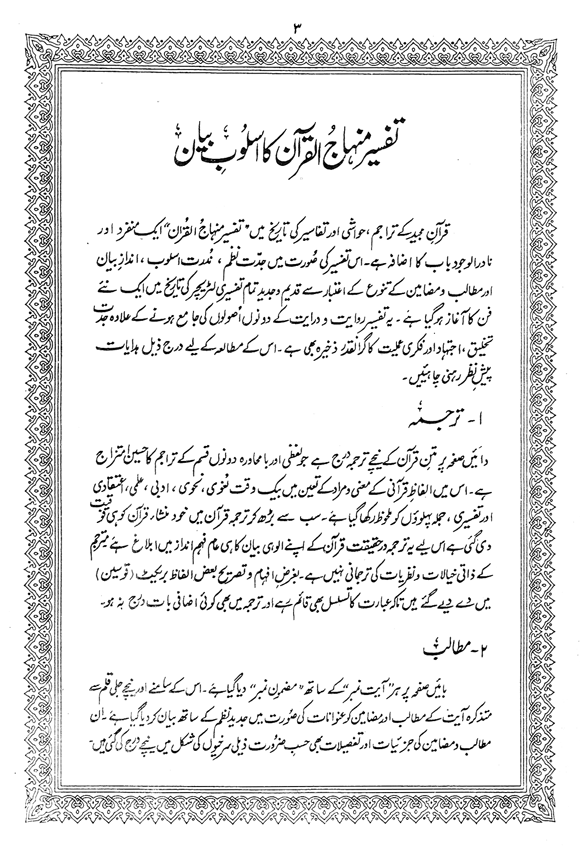 ۳
تفسیر منہاجُ القرآن کا اسلوبِ بیان
قرآنِ مجید کے تراجم، حواشی اور تفاسیر کی تاریخ میں "تفسیر منہاجُ القرآن" ایک منفرد اور
نادرالوجود باب کا اضافہ ہے۔ اس تفسیر کی صُورت میں جدّتِ نظم، نُدرتِ اسلوب، اندازِ بیان
اور مطالب و مضامین کے تنوع کے اعتبار سے قدیم و جدید تمام تفسیری لٹریچر کی تاریخ میں ایک نئے
فن کا آغاز ہو گیا ہے۔ یہ تفسیر روایت و درایت کے دونوں اُصولوں کی جامع ہونے کے علاوہ جدّتِ
تخلیق، اجتہاد اور فکری عملیت کا گرانقدر ذخیرہ بھی ہے۔ اس کے مطالعہ کے لیے درج ذیل ہدایات
پیشِ نظر رہنی چاہئیں۔
۱۔ ترجمہ
دائیں صفحہ پر متنِ قرآن کے نیچے ترجمہ درج ہے جو لفظی اور بامحاورہ دونوں قسم کے تراجم کا حسین امتزاج
ہے۔ اس میں الفاظِ قرآنی کے معنی و مراد کے تعین میں بیک وقت لغوی، نحوی، ادبی، علمی، اعتقادی
اور تفسیری، جملہ پہلوؤں کو ملحوظ رکھا گیا ہے۔ سب سے بڑھ کر ترجمہ قرآن میں خود منشاءِ قرآن کو ہی فوقیت
دی گئی ہے اس لیے یہ ترجمہ درحقیقت قرآن کے اپنے الوہی بیان کا ہی عام فہم انداز میں ابلاغ ہے مترجم
کے ذاتی خیالات و نظریات کی ترجمانی نہیں ہے۔ بغرضِ افہام و تصریح بعض الفاظ بریکٹ (قوسین)
میں دے دیے گئے ہیں تاکہ عبارت کا تسلسل بھی قائم رہے اور ترجمہ میں بھی کوئی اضافی بات درج نہ ہو۔
۲۔ مطالب
بائیں صفحہ پر ہر "آیت نمبر" کے ساتھ "مضمون نمبر" دیا گیا ہے۔ اس کے سامنے اور نیچے جلی قلم سے
متذکرہ آیت کے مطالب اور مضامین کو عنوانات کی صُورت میں جدید نظم کے ساتھ بیان کر دیا گیا ہے۔ ان
مطالب و مضامین کی جزئیات اور تفصیلات بھی حسبِ ضرورت ذیلی سرخیوں کی شکل میں نیچے درج کی گئی ہیں۔